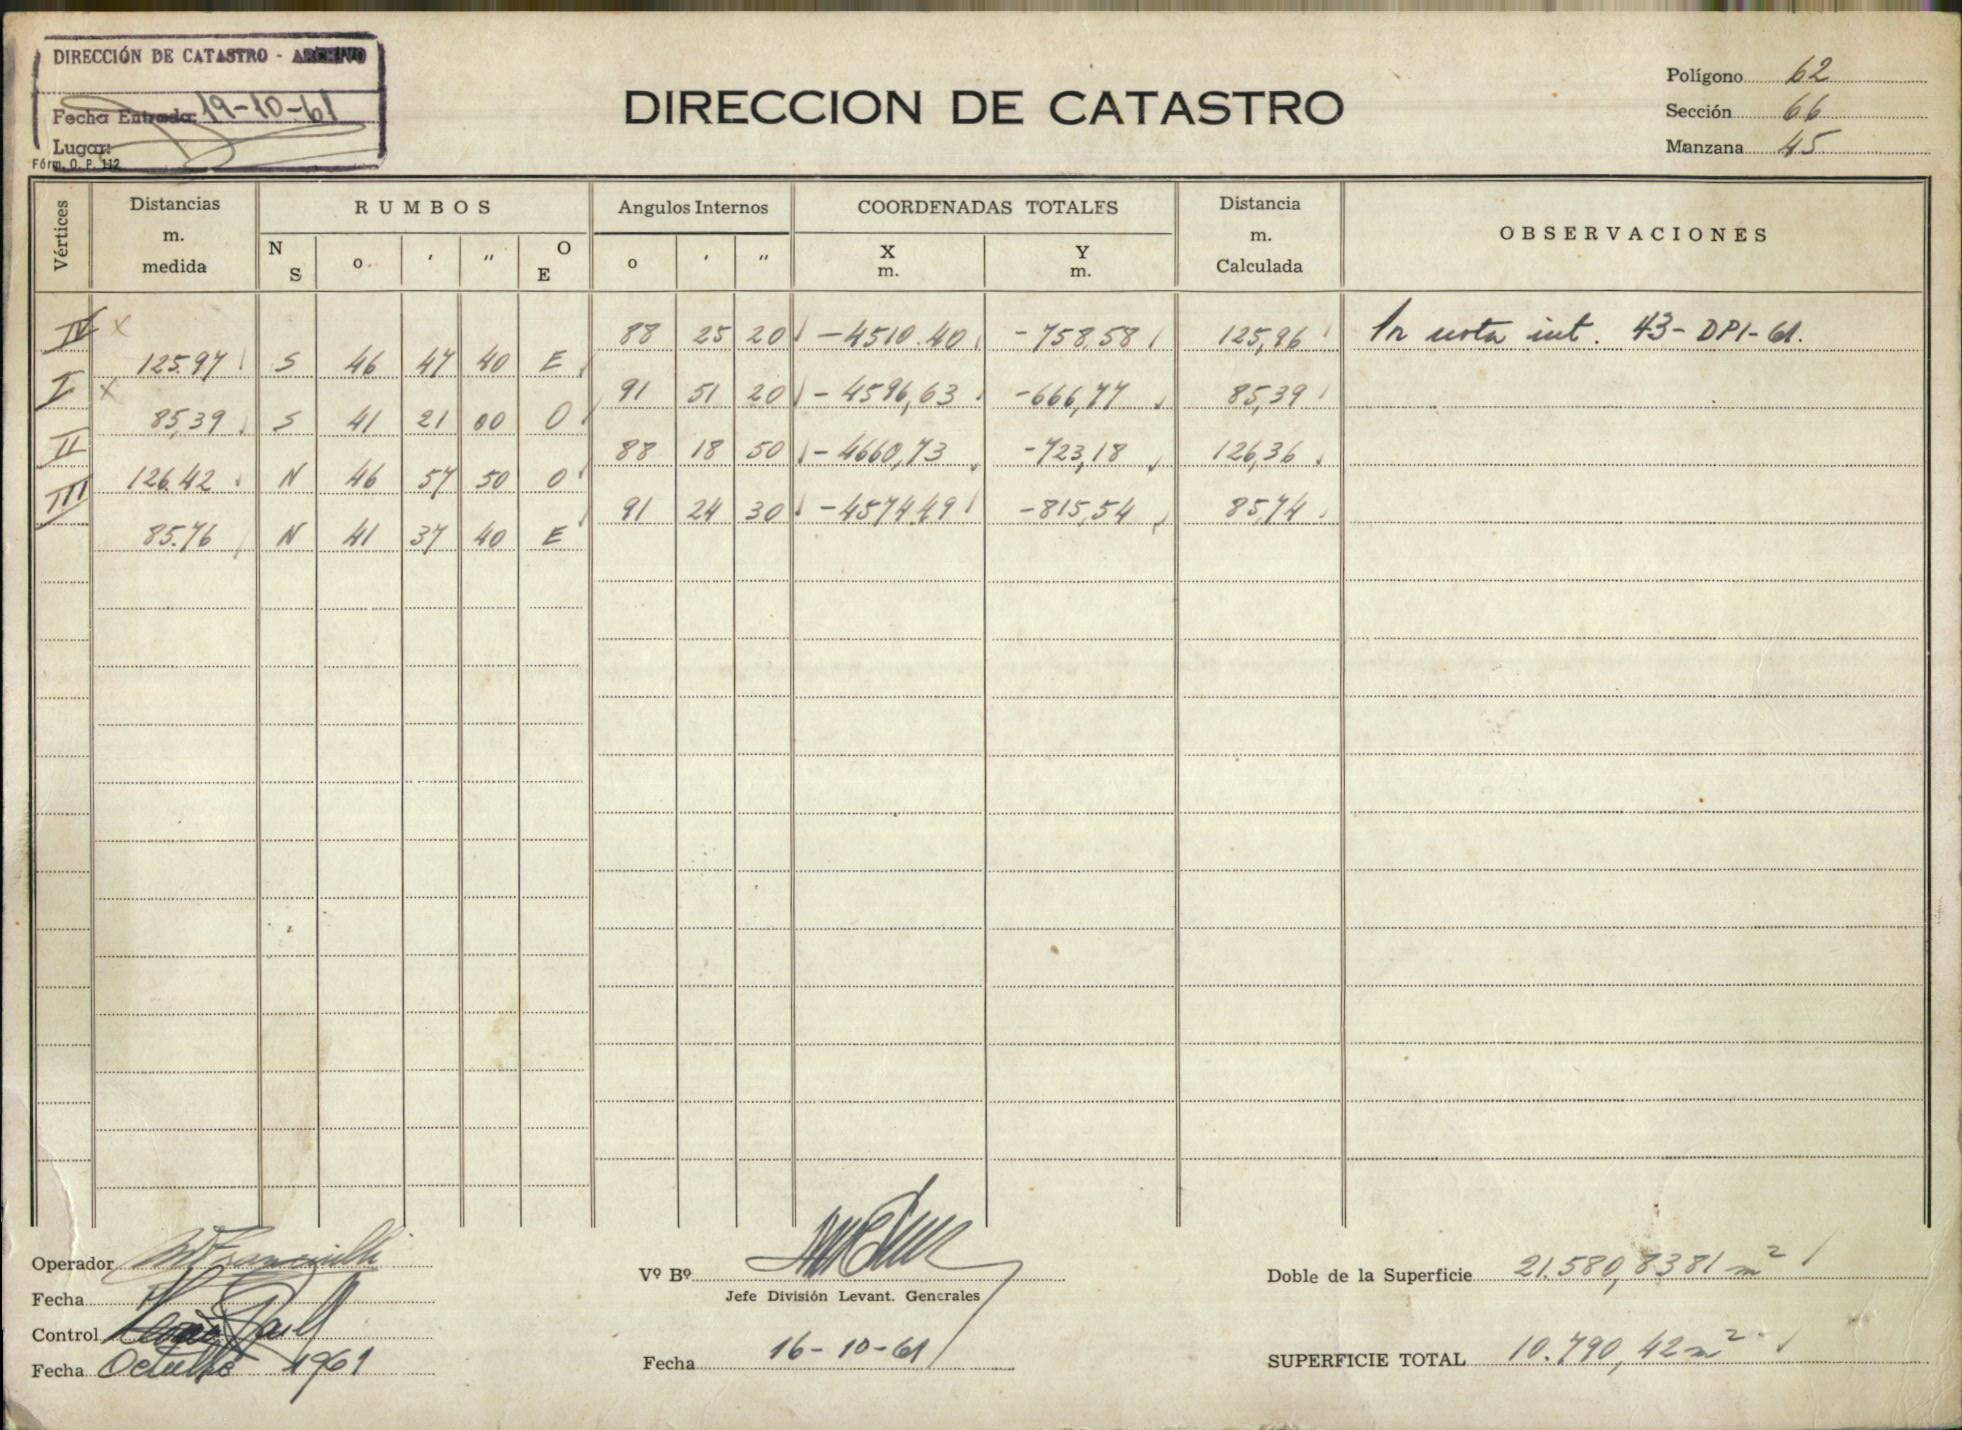 DIRECCIÓN DE CATASTRO - ARCHIVO
Fecha Entrada: 19-10-61
Lugar:
Fórm. O. P. 112
DIRECCION DE CATASTRO
Polígono 62
Sección 66
Manzana 45
Vértices Distancias m. medida RUMBOS Angulos Internos COORDENADAS TOTALES Distancia m. Calculada OBSERVACIONES
N S o ' " O E o ' " X m. Y m.
IV x 88 25 20 -4510.40 -758,58 125,96 nota int. 43-DPI-61.
125.97 S 46 47 40 E
I x 91 51 20 -4596,63 -666,77 85,39
85,39 S 41 21 00 O
II 88 18 50 -4660,73 -723,18 126,36
126.42 N 46 57 50 O
III 91 24 30 -4574.49 -815,54 85,74
85.76 N 41 37 40 E
Operador
Fecha
Control
Fecha Octubre 1961
Vº Bº
Jefe División Levant. Generales
Fecha 16-10-61
Doble de la Superficie 21.580,8381 m²
SUPERFICIE TOTAL 10.790,42 m²